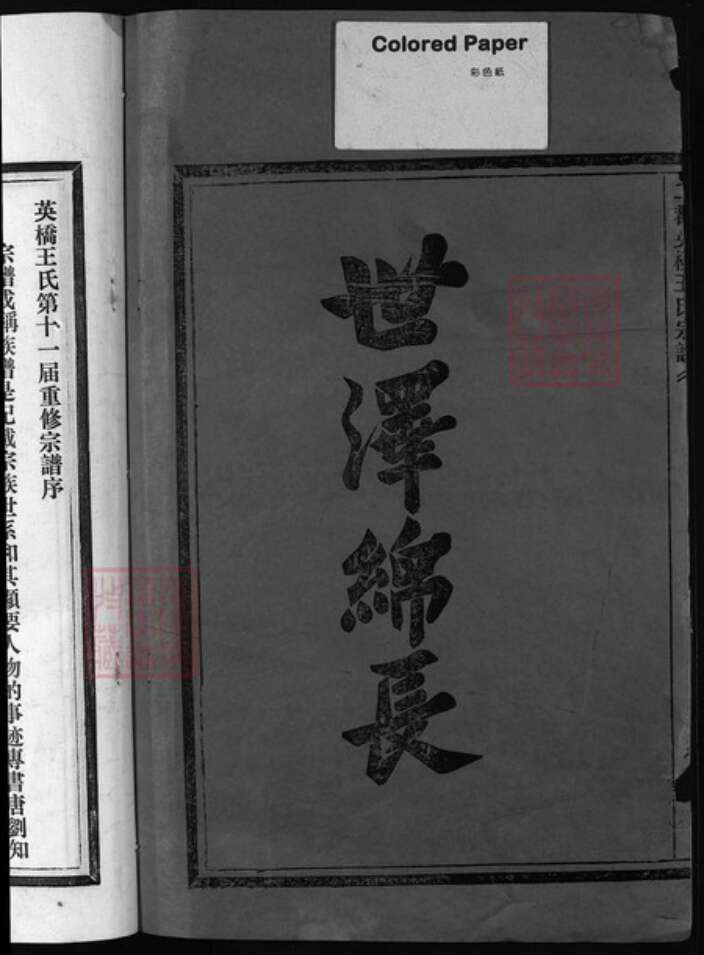 Colored Paper
彩色紙
世澤綿長
英橋王氏第十一届重修宗譜序
宗譜或稱族譜是記載宗族世系和其顯要人物的事迹專書唐劉知